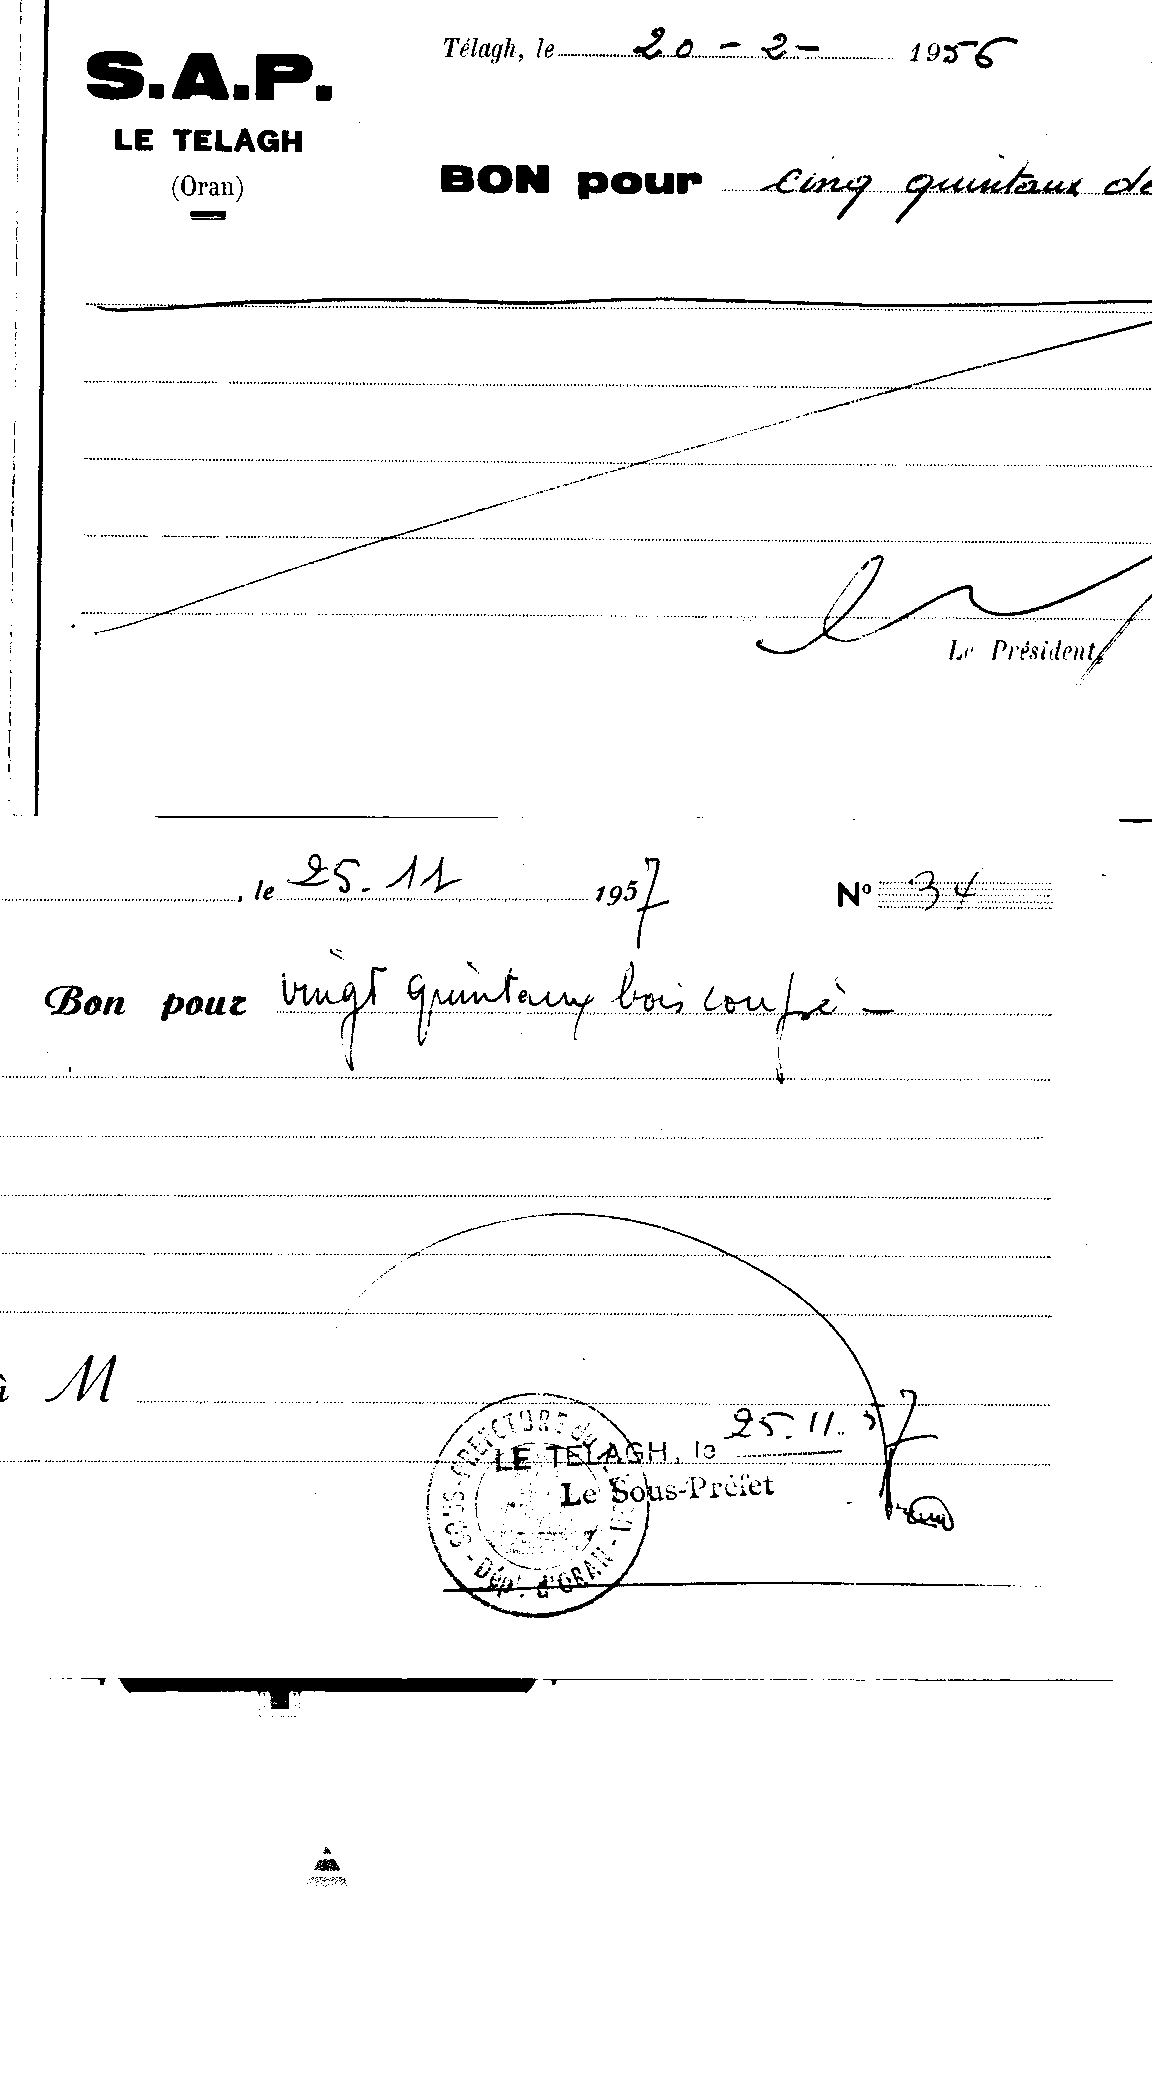 Télagh, le 20 - 2 - 1956
S.A.P.
LE TELAGH
(Oran)
BON pour cinq quintaux de
Le Président,
, le 25.11 1957 Nº 34
Bon pour vingt quintaux bois coupé -
à M
25.11.57
LE TELAGH, le
Le Sous-Préfet
SOUS-PREFECTURE du
- Dépt. d'ORAN -